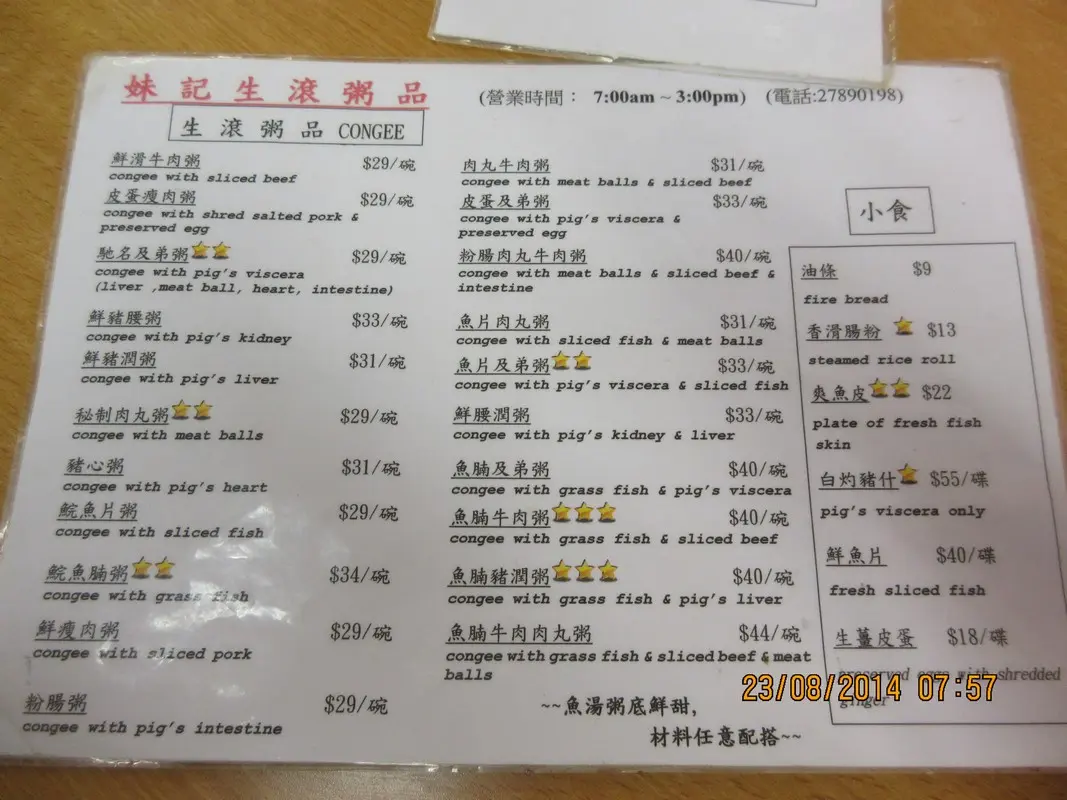 妹記生滾粥品 (營業時間： 7:00am ~ 3:00pm) (電話:27890198)
生滾粥品 CONGEE
鮮滑牛肉粥 $29/碗
congee with sliced beef
皮蛋瘦肉粥 $29/碗
congee with shred salted pork &
preserved egg
馳名及弟粥 $29/碗
congee with pig's viscera
(liver ,meat ball, heart, intestine)
鮮豬腰粥 $33/碗
congee with pig's kidney
鮮豬潤粥 $31/碗
congee with pig's liver
秘制肉丸粥 $29/碗
congee with meat balls
豬心粥 $31/碗
congee with pig's heart
鯇魚片粥 $29/碗
congee with sliced fish
鯇魚腩粥 $34/碗
congee with grass fish
鮮瘦肉粥 $29/碗
congee with sliced pork
粉腸粥 $29/碗
congee with pig's intestine
肉丸牛肉粥 $31/碗
congee with meat balls & sliced beef
皮蛋及弟粥 $33/碗
congee with pig's viscera &
preserved egg
粉腸肉丸牛肉粥 $40/碗
congee with meat balls & sliced beef &
intestine
魚片肉丸粥 $31/碗
congee with sliced fish & meat balls
魚片及弟粥 $33/碗
congee with pig's viscera & sliced fish
鮮腰潤粥 $33/碗
congee with pig's kidney & liver
魚腩及弟粥 $40/碗
congee with grass fish & pig's viscera
魚腩牛肉粥 $40/碗
congee with grass fish & sliced beef
魚腩豬潤粥 $40/碗
congee with grass fish & pig's liver
魚腩牛肉肉丸粥 $44/碗
congee with grass fish & sliced beef & meat
balls
~~魚湯粥底鮮甜,
材料任意配搭~~
小食
油條 $9
fire bread
香滑腸粉 $13
steamed rice roll
爽魚皮 $22
plate of fresh fish
skin
白灼豬什 $55/碟
pig's viscera only
鮮魚片 $40/碟
fresh sliced fish
生薑皮蛋 $18/碟
preserved eggs with shredded
ginger
23/08/2014 07:57